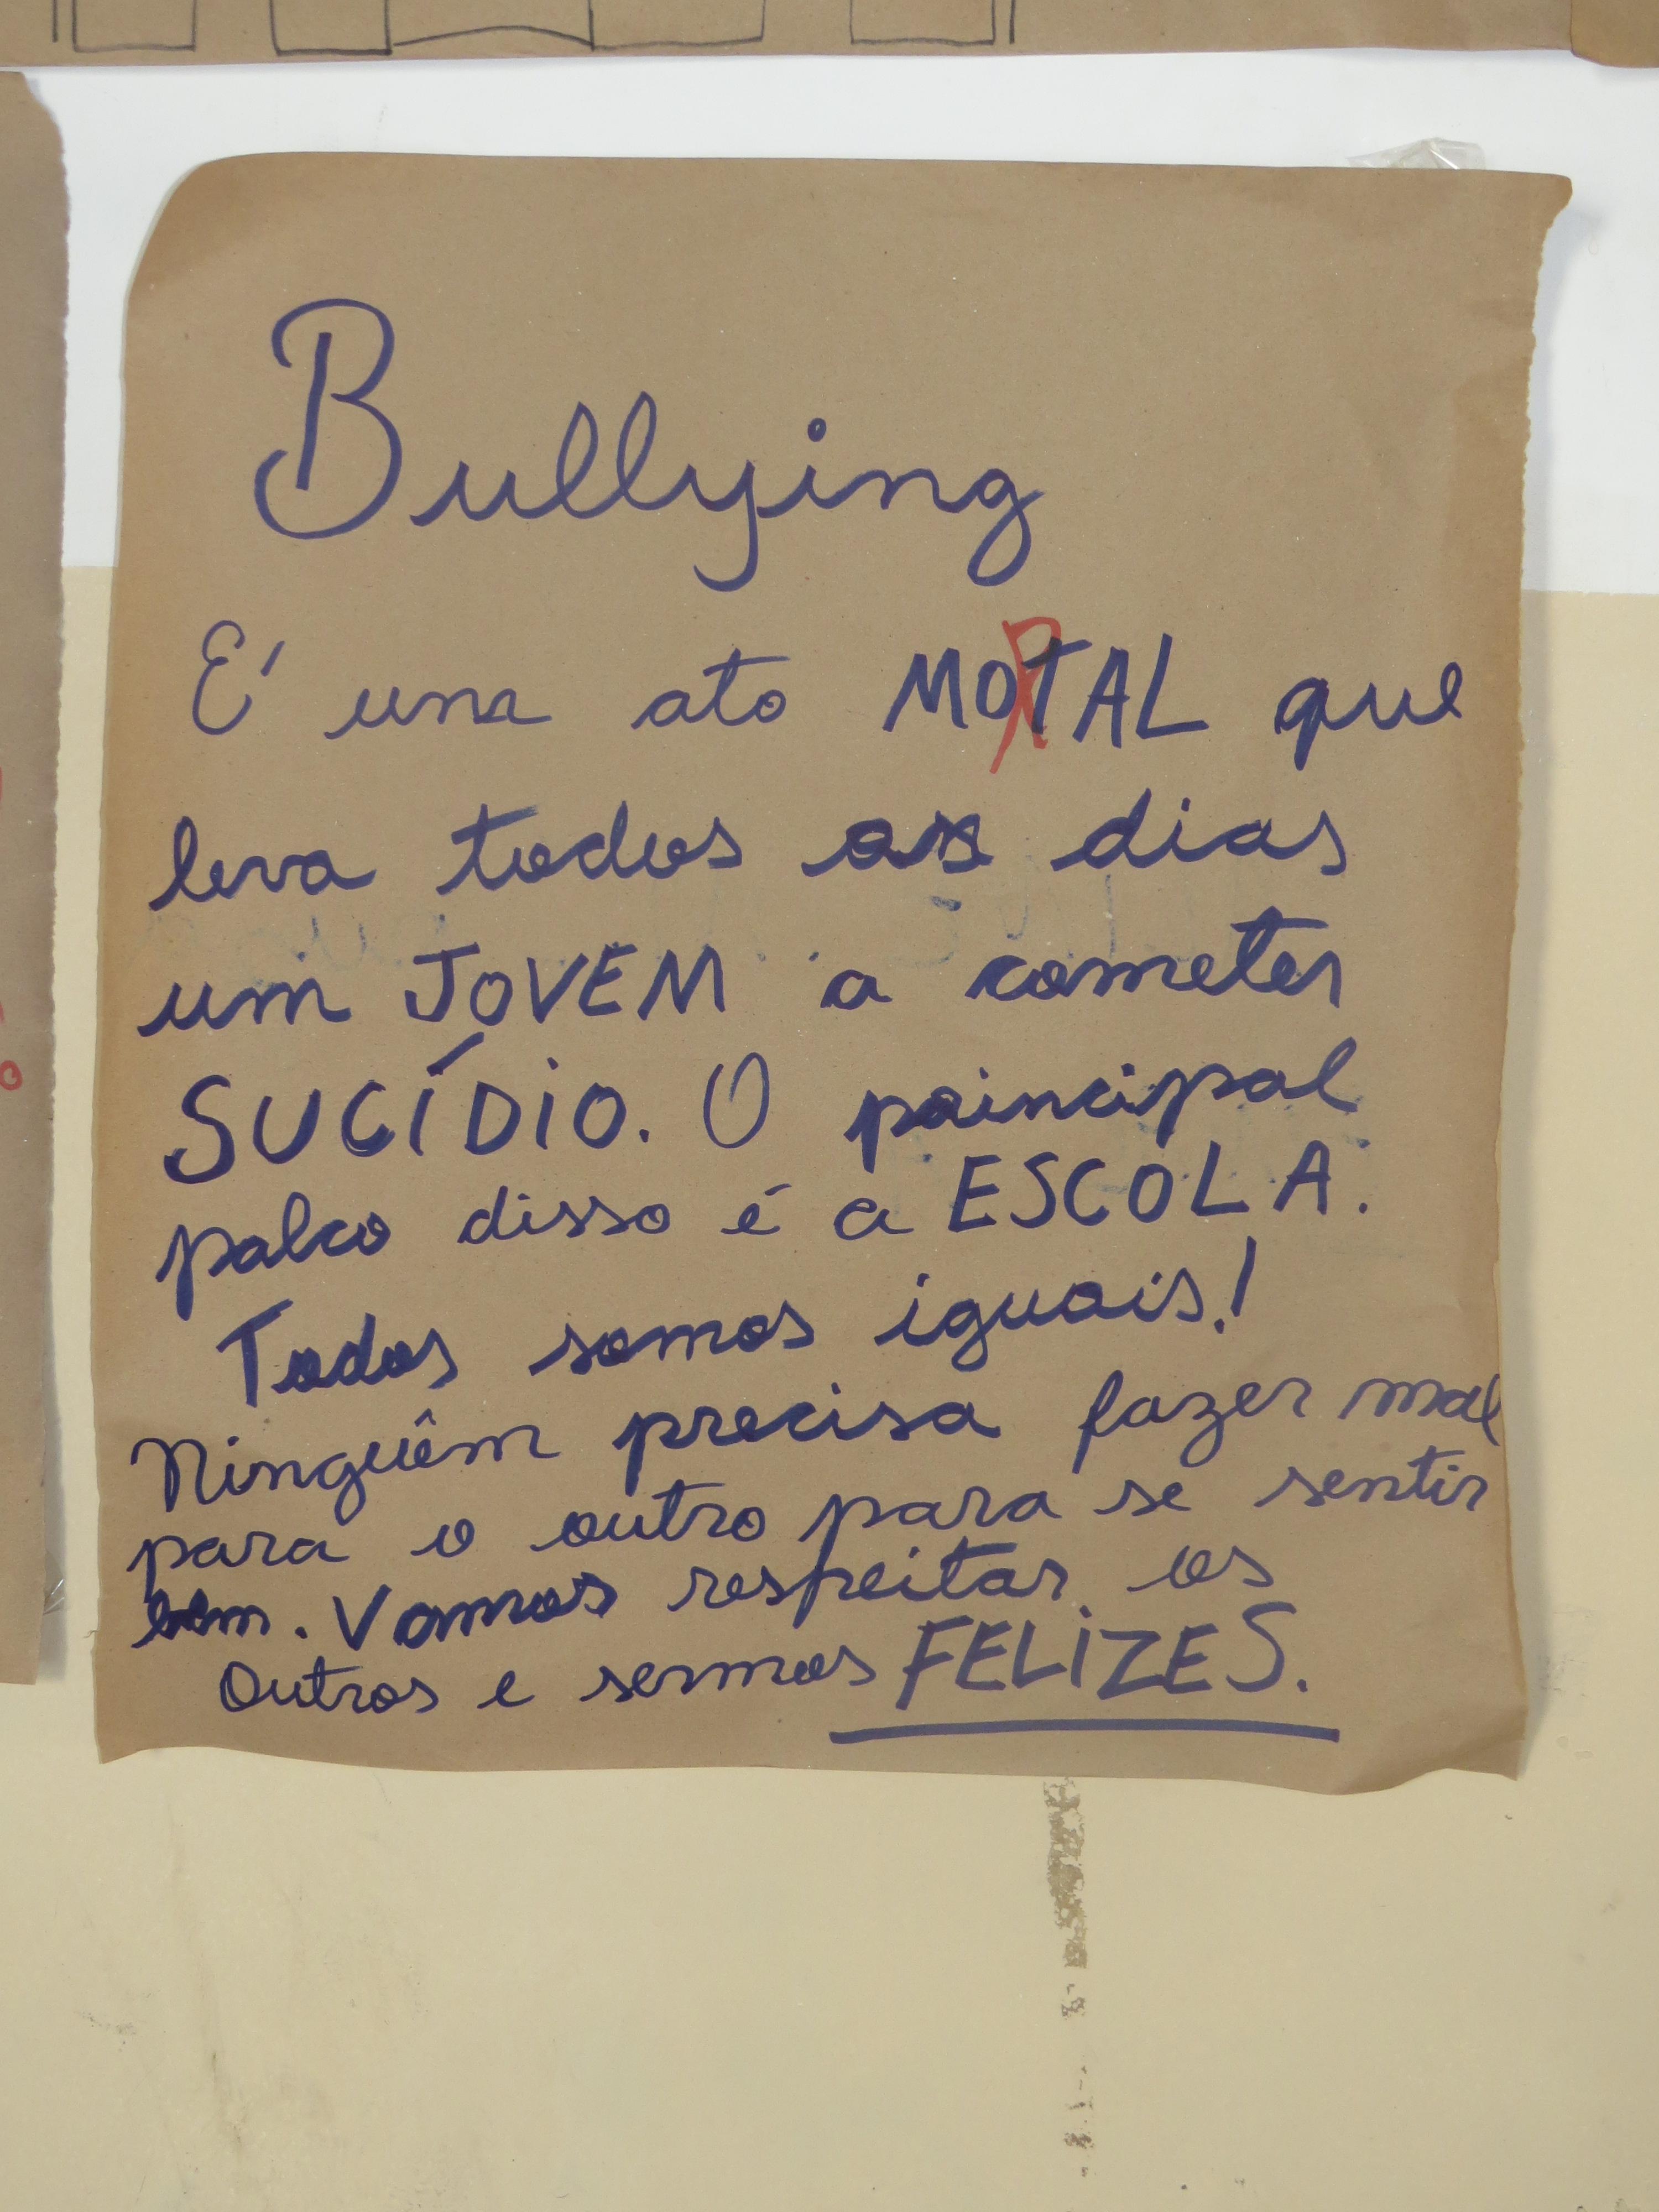 Bullying
É uma ato MORTAL que
leva todos os dias
um JOVEM a cometer
SUCÍDIO. O principal
palco disso é a ESCOLA.
Todos somos iguais!
Ninguêm precisa fazer mal
para o outro para se sentir
bem. Vamos respeitar os
outros e sermos FELIZES.